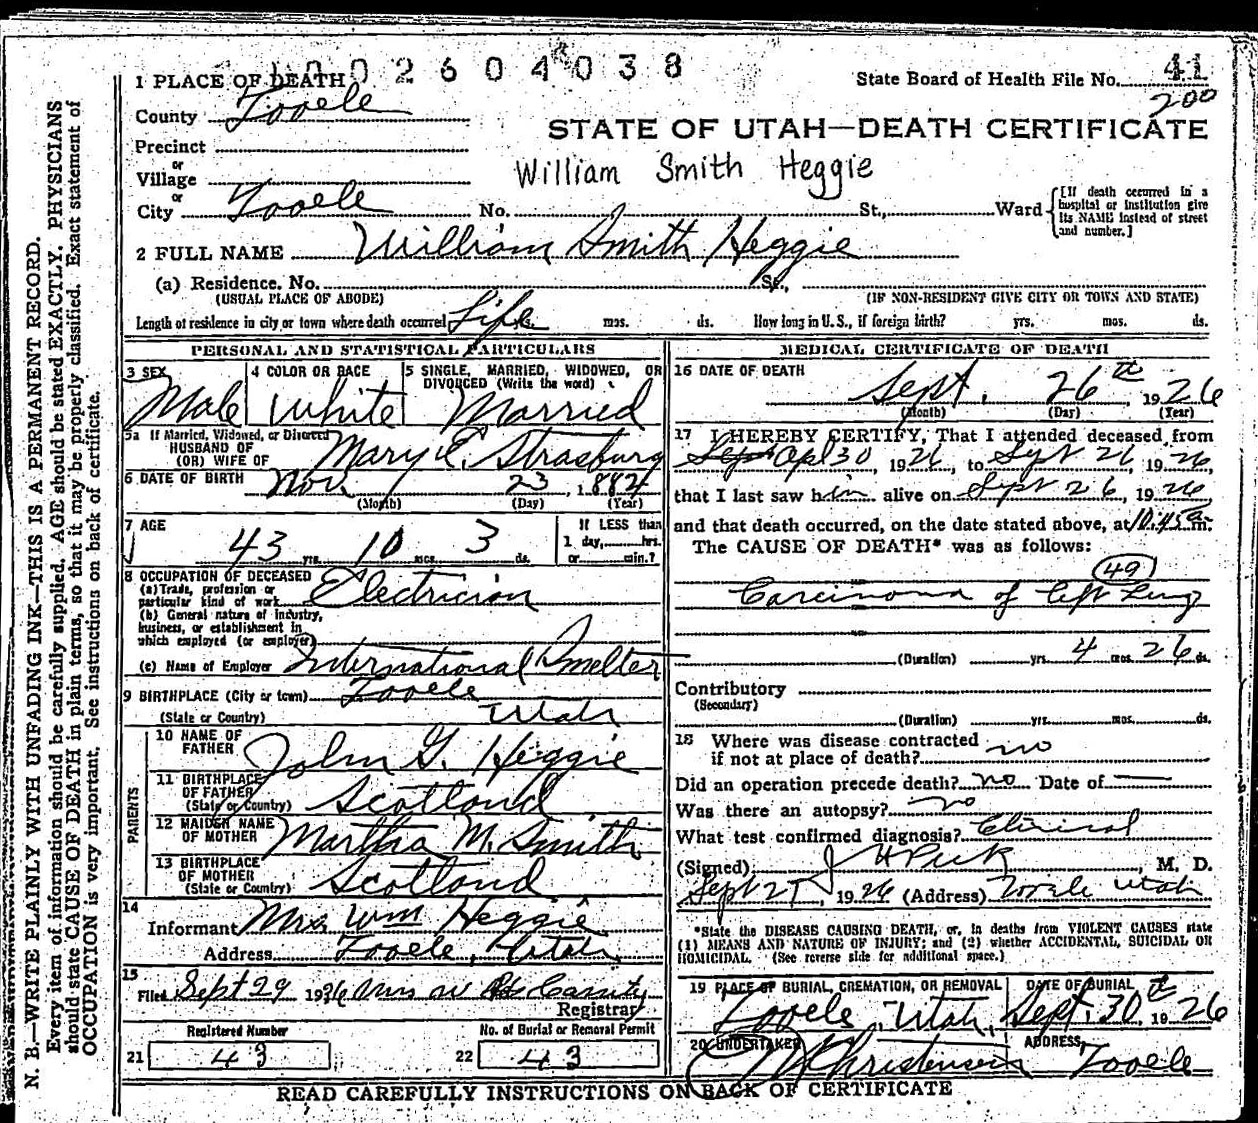 1002604038
State Board of Health File No. 41
200
1 PLACE OF DEATH
County Tooele
STATE OF UTAH—DEATH CERTIFICATE
Precinct
or
Village
William Smith Heggie
or
City Tooele No. St., Ward
[If death occurred in a hospital or institution give its NAME instead of street and number.]
2 FULL NAME William Smith Heggie
(a) Residence. No. St.,
(USUAL PLACE OF ABODE) (IF NON-RESIDENT GIVE CITY OR TOWN AND STATE)
Length of residence in city or town where death occurred Life mos. ds. How long in U. S., if foreign birth? yrs. mos. ds.
PERSONAL AND STATISTICAL PARTICULARS
3 SEX Male
4 COLOR OR RACE White
5 SINGLE, MARRIED, WIDOWED, OR DIVORCED (Write the word) Married
5a If Married, Widowed, or Divorced
HUSBAND OF
(OR) WIFE OF Mary E. Strasburg
6 DATE OF BIRTH Nov 23, 1882
(Month) (Day) (Year)
7 AGE 43 yrs. 10 mos. 3 ds.
If LESS than
1 day, hrs.
or min.?
8 OCCUPATION OF DECEASED
(a) Trade, profession or
particular kind of work Electrician
(b) General nature of industry,
business, or establishment in
which employed (or employer)
(c) Name of Employer International Smelter
9 BIRTHPLACE (City or town) Tooele
(State or Country) Utah
PARENTS
10 NAME OF
FATHER John G. Heggie
11 BIRTHPLACE
OF FATHER
(State or Country) Scotland
12 MAIDEN NAME
OF MOTHER Martha M. Smith
13 BIRTHPLACE
OF MOTHER
(State or Country) Scotland
14
Informant Mrs Wm Heggie
Address Tooele, Utah
15
Filed Sept 29 1926 Mrs W
Registrar
Registered Number No. of Burial or Removal Permit
21 43 22 43
MEDICAL CERTIFICATE OF DEATH
16 DATE OF DEATH
Sept. 26th 1926
(Month) (Day) (Year)
17 I HEREBY CERTIFY, That I attended deceased from
Sept Apl 30, 1926, to Sept 26 1926,
that I last saw him alive on Sept 26, 1926
and that death occurred, on the date stated above, at 10:45 a m.
The CAUSE OF DEATH* was as follows:
49
Carcinoma of left Lung
(Duration) yrs. 4 mos. 26 ds.
Contributory
(Secondary)
(Duration) yrs. mos. ds.
18 Where was disease contracted
if not at place of death? no
Did an operation precede death? no Date of —
Was there an autopsy? no
What test confirmed diagnosis? Clinical
(Signed) J H Peck, M. D.
Sept 27, 1926 (Address) Tooele Utah
*State the DISEASE CAUSING DEATH, or, in deaths from VIOLENT CAUSES state
(1) MEANS AND NATURE OF INJURY; and (2) whether ACCIDENTAL, SUICIDAL OR
HOMICIDAL. (See reverse side for additional space.)
19 PLACE OF BURIAL, CREMATION, OR REMOVAL DATE OF BURIAL
Tooele, Utah, Sept. 30th 1926
20 UNDERTAKER ADDRESS
Christensen Tooele
READ CAREFULLY INSTRUCTIONS ON BACK OF CERTIFICATE
N. B.—WRITE PLAINLY WITH UNFADING INK—THIS IS A PERMANENT RECORD.
Every item of information should be carefully supplied. AGE should be stated EXACTLY. PHYSICIANS
should state CAUSE OF DEATH in plain terms, so that it may be properly classified. Exact statement of
OCCUPATION is very important. See instructions on back of certificate.